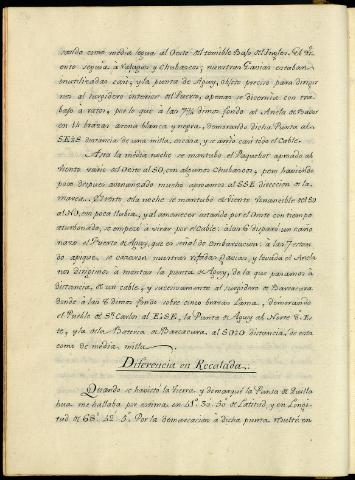 varlo como media legua al Oeste del temible Bajo del Ingles. El vi-
ento seguia à Ralagas y Chubascos; nuestras Gavias estaban
inutilizadas casi, y la punta de Aguy, objeto preciso para dirigir
nos al surgidero interior del Puerto, apenas se discernia con tra-
bajo à ratos, por lo que à las 7¾ dimos fondo al Ancla de Babor
en 14 brazas arena blanca y negra, demorando dicha Punta al
SE distancia de una milla, escasa, y se arrió casi todo el Cable.
Asta la media noche se mantubo el Paquebot aproado al
viento vario del Oeste al SO, con algunos Chubascos, pero haviendo
poco despues abonanzado mucho aproamos al SSE direccion de la
marea. El resto de la noche se mantubo el viento bonancible del SO
al NO, con poca lluvia, y al amanecer estando por el Oeste con tiempo
aturbonado, se empezó à virar por el Cable: à las 6 disparó un caño-
nazo el Puerto de Aguy, que es señal de Embarcacion: à las 7 estan-
do apique, se cazaron nuestras Gavias, y levada el Ancla
nos dirigimos à montar la punta de Aguy, de la que pasamos à
distancia de un cable, y sucesivamente al surgidero de Barcacura
donde à las 8 dimos fondo sobre cinco brazas Lama, demorando
el Pueblo de Sn. Carlos al E¼SE, la Punta de Aguy al Norte 8º Es-
te, y la otra Bateria de Barcacura al SO¼O distancia de esta
como de media milla.
Diferencia en Recalada.
Quando se havistó la tierra y demarqué la Punta de Quilla
hua me hallaba por estima en 41º. 30'. 30" de Latitud, y en Longi-
tud de 68º. 42'. 5". Por la demarcacion à dicha punta resultó en